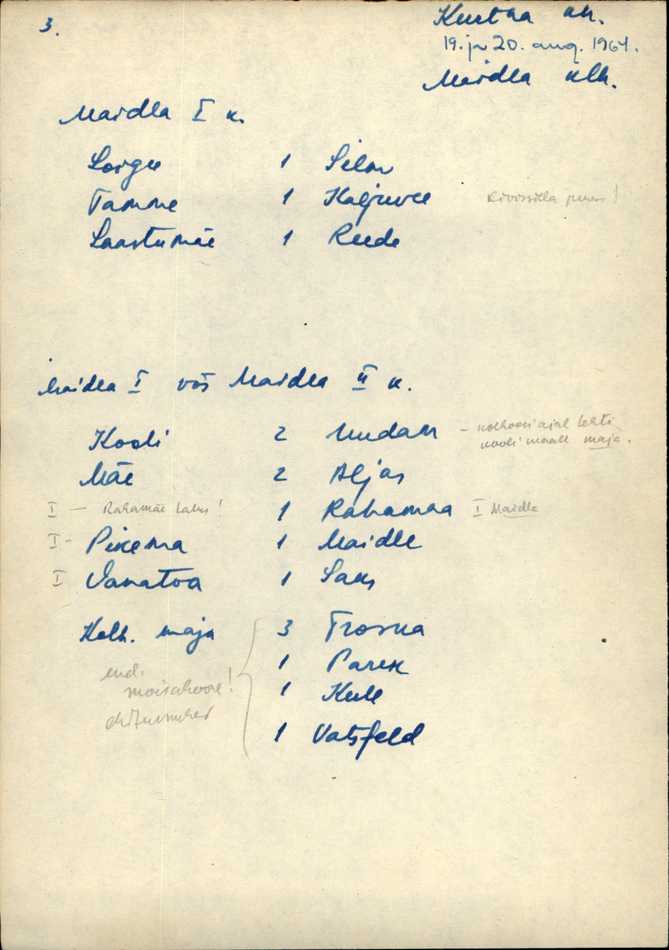 3.
Kurtna kn.
19. ja 20. aug. 1964.
Maidla klh.
Maidla I k.
Sorge 1
Tamme 1 Kaljuvee
Laastumäe 1 Reede
Maidla I või Maidla II k.
Kooli 2 - kolhoosi ajal tehti
kooli maale maja.
Mäe 2 Aljas
I - Rahamäe talus! 1 Rahamaa I Maidla
I - Pikema 1 Maidle
I Vanatoa 1 Saks
Kolh. maja 3 Trosna
end. 1 Parek
moisahoone! 1 Kull
1 Vatsfeld